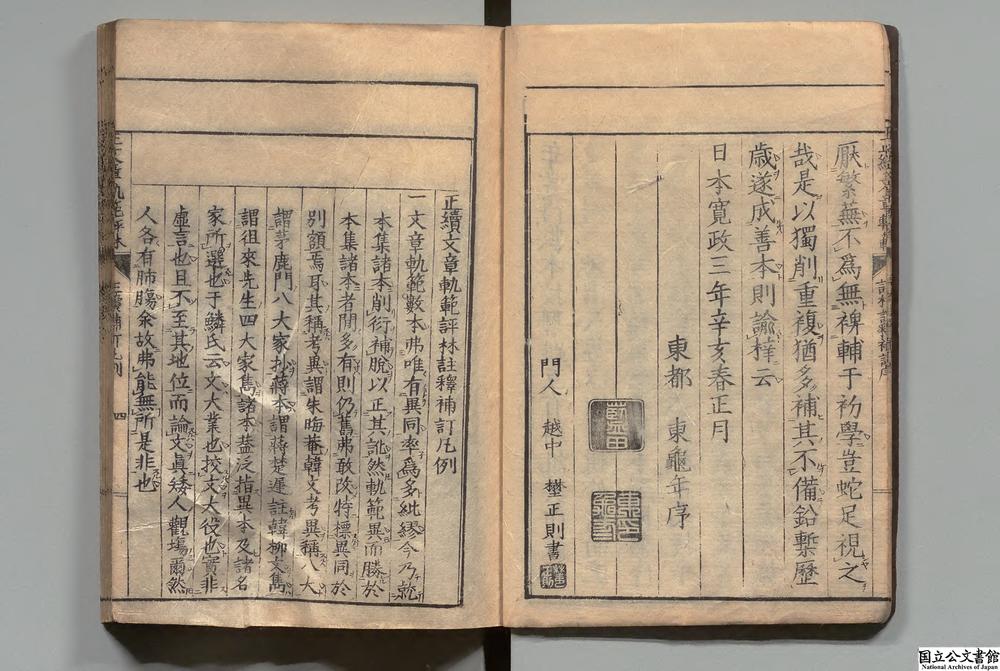 厭繁蕪不爲無裨輔于初學豈蛇足視之
哉是以獨削重複猶多補其不備鉛槧歷
歳遂成善本則諭梓云
日本寛政三年辛亥春正月
東都 東龜年序
藍田
門人 越中 埜正則書
正續文章軌範評林註釋補訂凡例
一文章軌範數本弗唯有異同率爲多紕繆今乃就
本集諸本削衍補脫以正其訛然軌範異而勝於
本集諸本者間多有則仍舊弗敢改特標異同於
別額焉耳其稱考異謂朱晦菴韓文考異稱八大
謂茅鹿門八大家抄蔣本謂蔣楚遲註韓柳文雋
謂徂來先生四大家雋諸本葢泛指異本及諸名
家所選也于鱗氏云文大業也挍文大役也實非
虛言也且不至其地位而論文眞矮人觀塲爾然
人各有肺膓余故弗能無所是非也
四
国立公文書館
National Archives of Japan